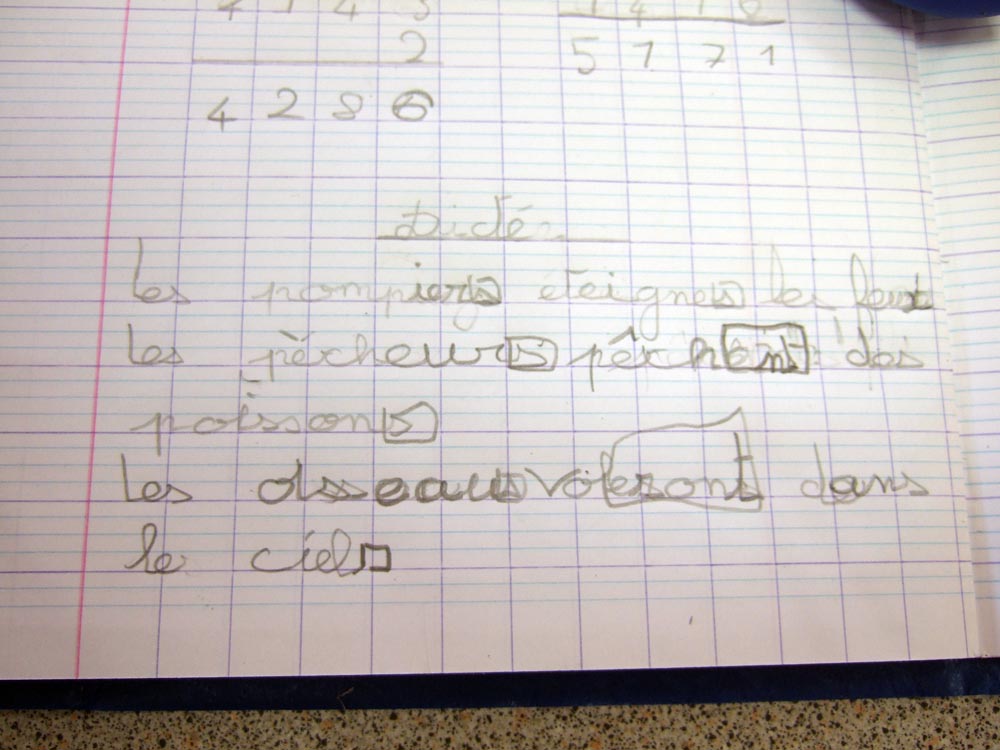 2
5 1 7 1
4 2 8 6
Dictée
les pompiers éteignes les feut
les pêcheurs pêchent des
poissons
les oisseaus voleront dans
le ciel